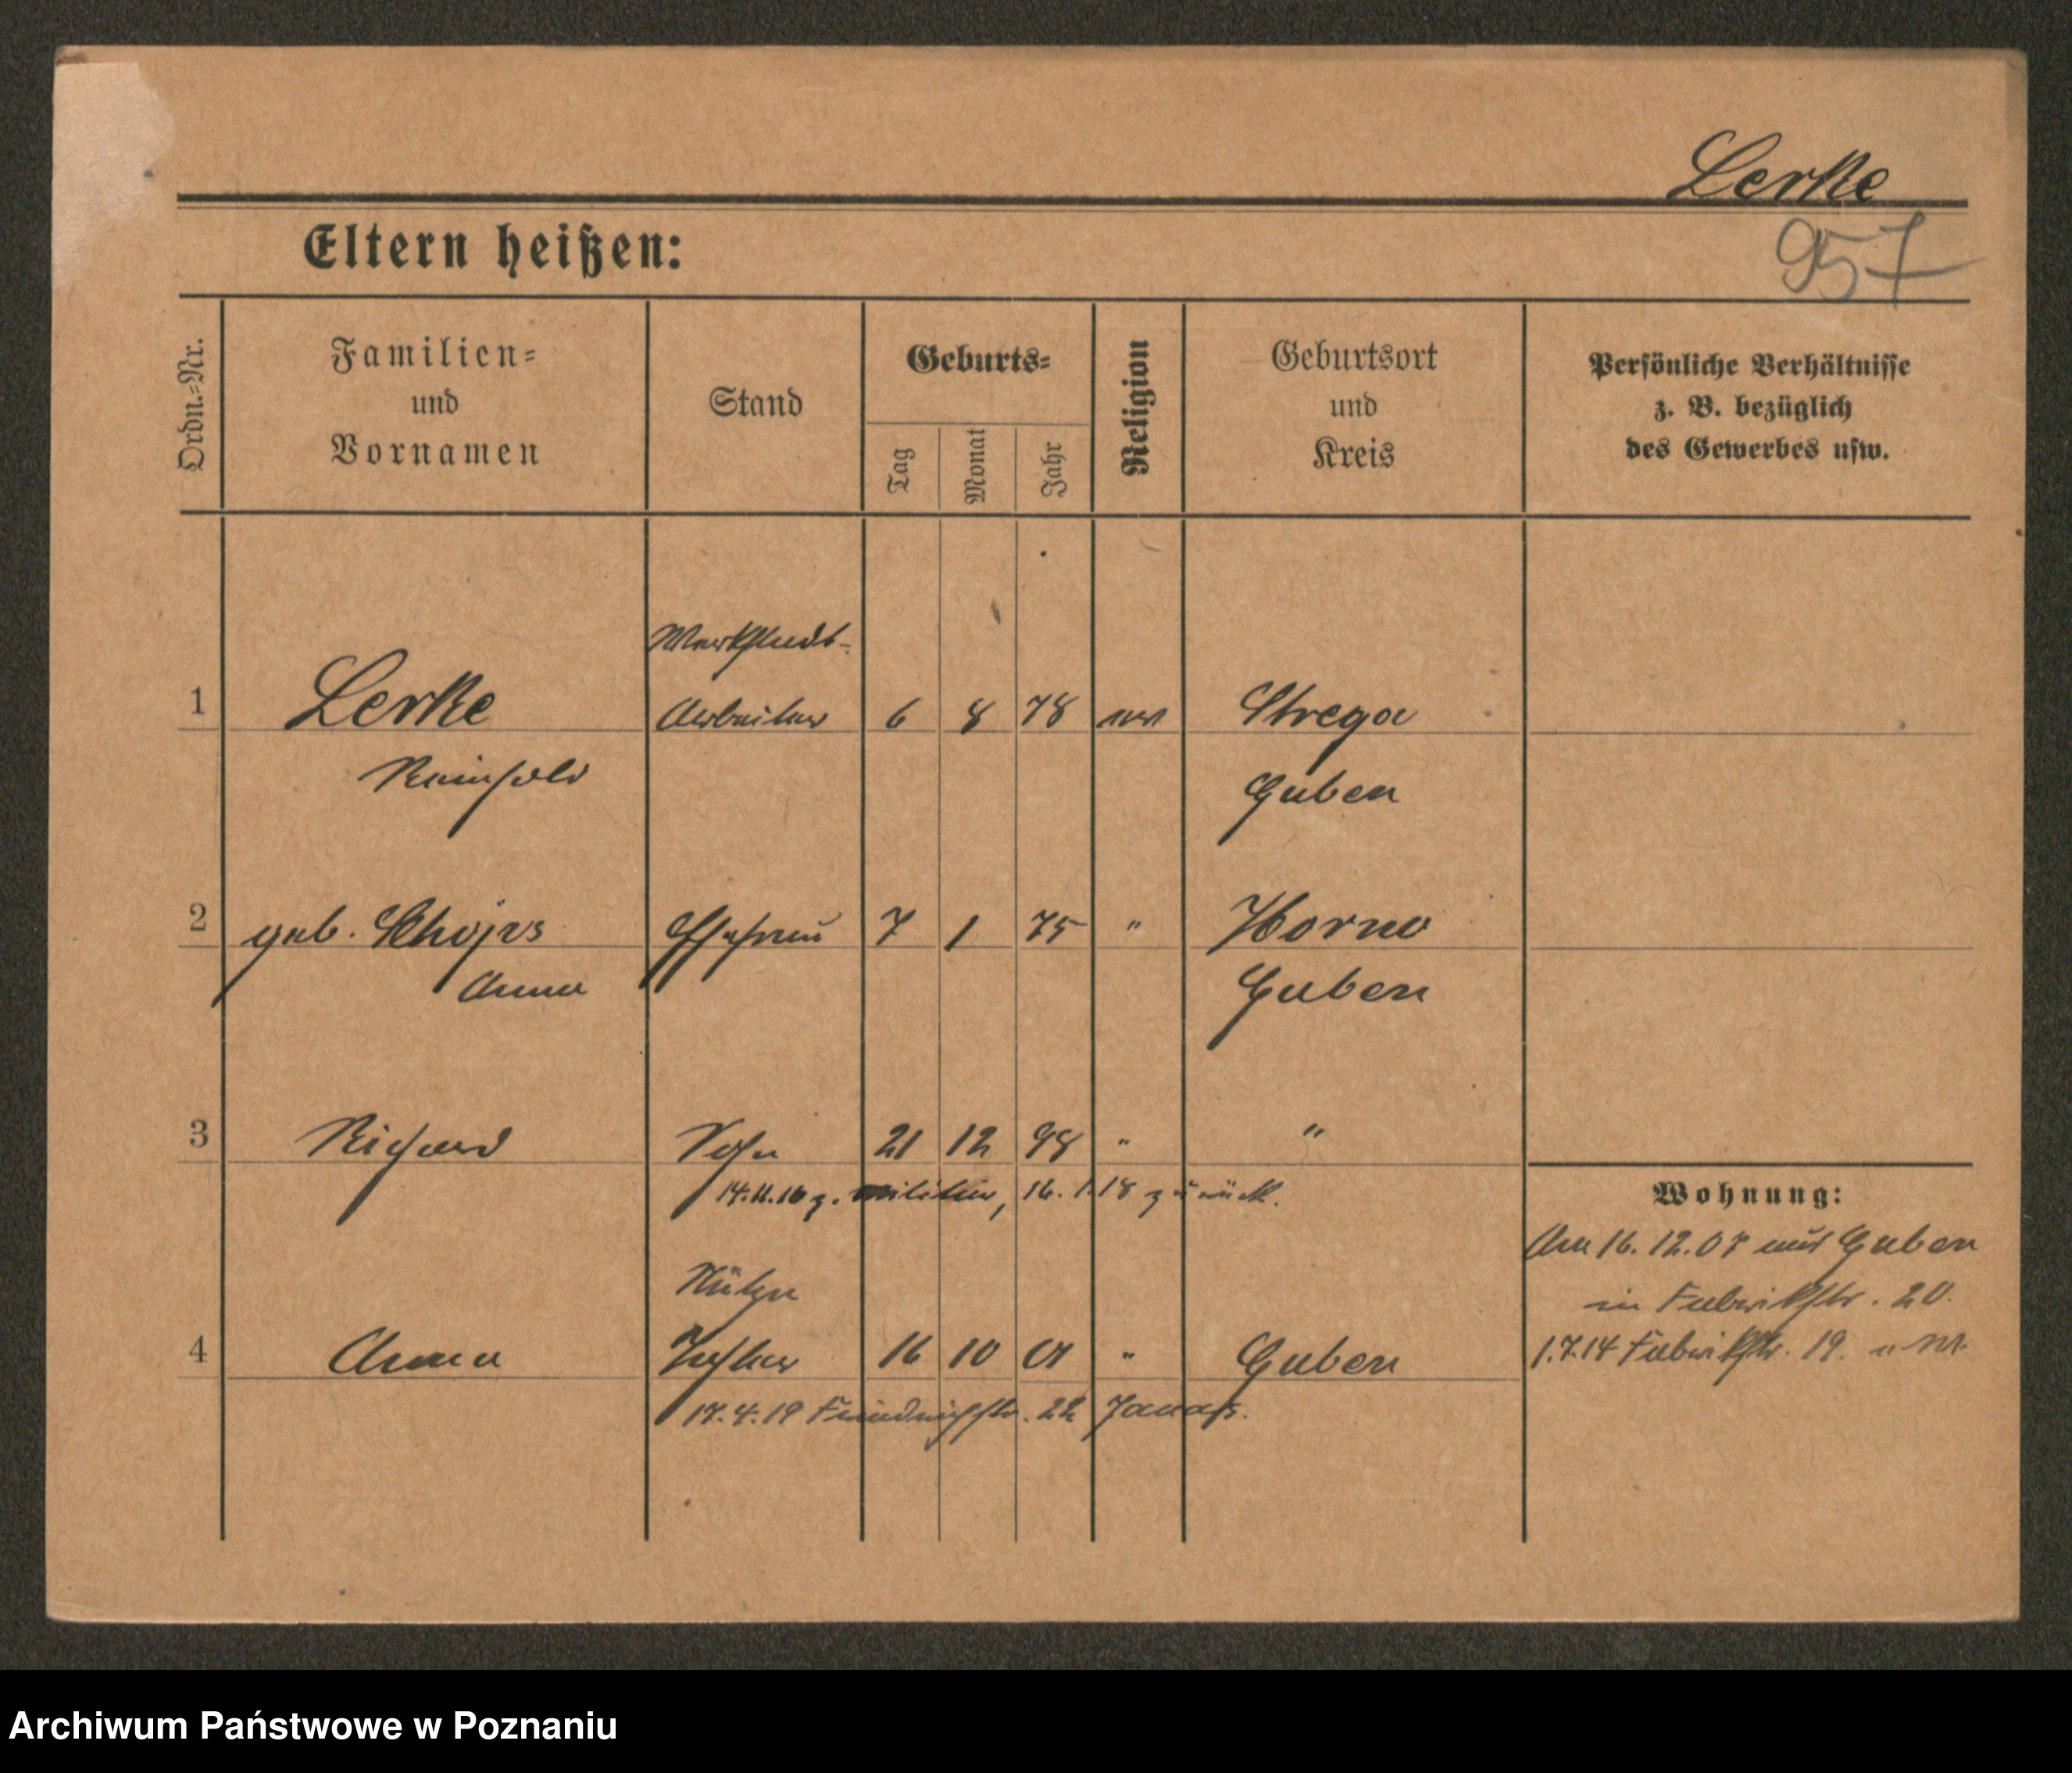 Lerke
957
Eltern heißen:
Ordn.-Nr.
Familien-
und
Vornamen
Stand
Geburts-
Tag
Monat
Jahr
Religion
Geburtsort
und
Kreis
Persönliche Verhältnisse
z. B. bezüglich
des Gewerbes usw.
Werkstadt-
1 Lerke Arbeiter 6 8 78 ev Strega
Reinhold Guben
2 geb. Schojrs Ehefrau 7 1 75 " Horno
Anna Guben
3 Richard Sohn 21 12 98 " "
14.11.16 z. Militär, 16.1.18 zurück.
Wohnung:
Am 16.12.07 aus Guben
in Fabrikstr. 20.
4 Anna Tochter 16 10 01 " Guben
1.7.14 Fabrikstr. 19.
17.4.19 Friedrichstr. 22
Archiwum Państwowe w Poznaniu